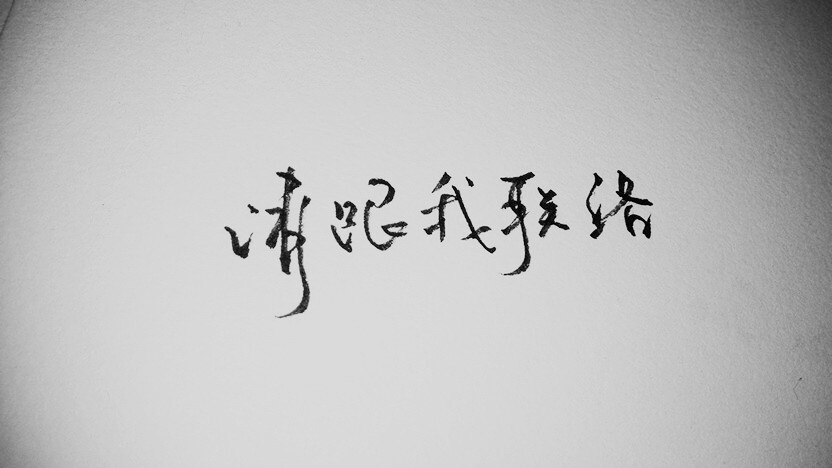 请跟我联络